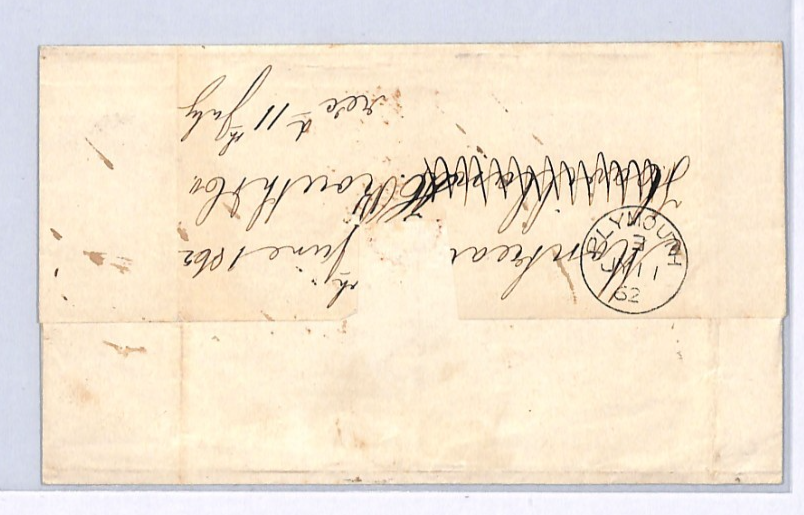 Montreal
June 1862
H. Routh & Co
recd 11th July
PLYMOUTH
JY 11
62